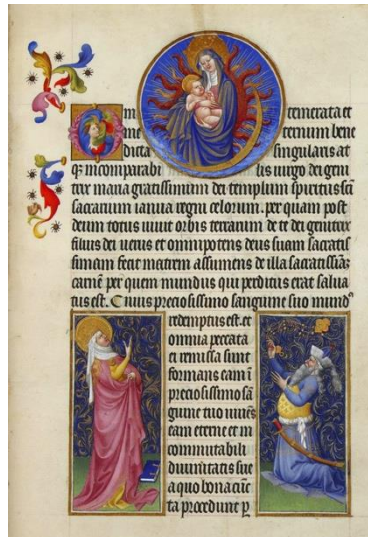 O in temerata et
in e ternum bene
dicta singularis at
qꝫ incomparabi lis uirgo dei geni
trix maria gratissimum dei templum spiritus scī
sacrarium ianua regni celorum. per quam post
deum totus uiuit orbis terrarum de te dei genitrix
filius dei uerus et omnipotens deus suam sacratis
simam fecit matrem assumens de illa sacratissiā
carnē per quem mundus qui perditus erat salua
tus est. Cuius preciosissimo sanguine suo mundꝰ
redemptus est. et
omnia peccata
ei remissa sunt
formans eam ī
preciosissimo sā
guine tuo niuēs
eam eterne et in
commutabili
diuinitatis sue
a quo bona cūc
ta procedunt p̲